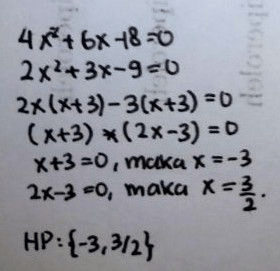 4x²+6x-18=0
2x²+3x-9=0
2x(x+3)-3(x+3)=0
(x+3)*(2x-3)=0
x+3=0, maka x=-3
2x-3=0, maka x=3/2.
HP:{-3,3/2}